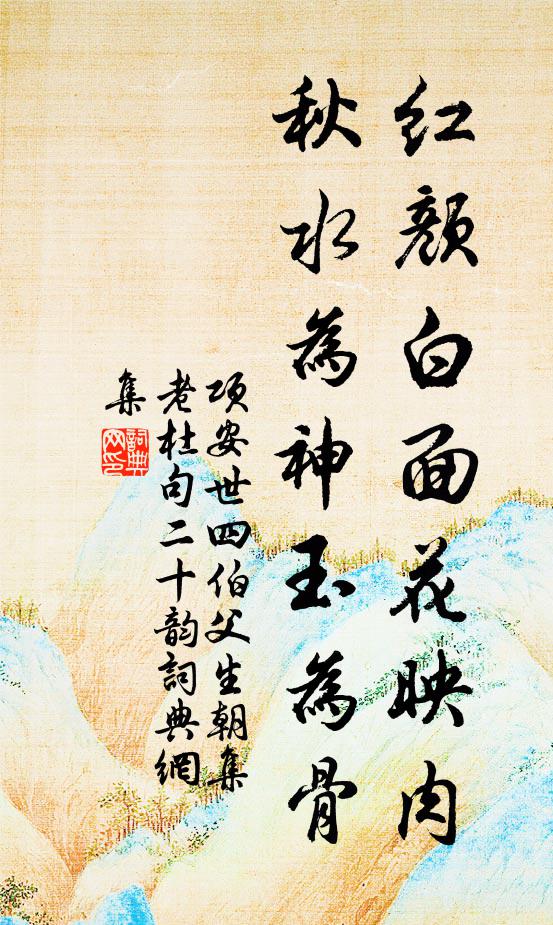 红颜白面花映肉
秋水為神玉為骨
项安世四伯父生朝集
老杜句二十韵詞典網
集
詞典
网印